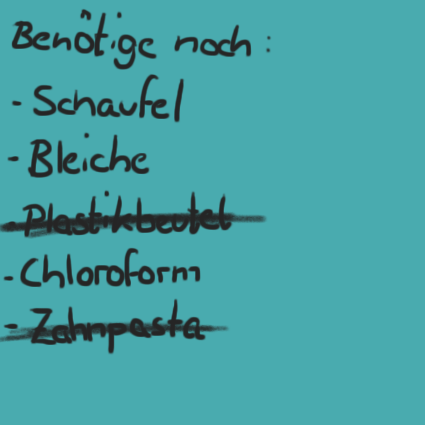 Benötige noch:
- Schaufel
- Bleiche
- Plastikbeutel
- Chloroform
- Zahnpasta